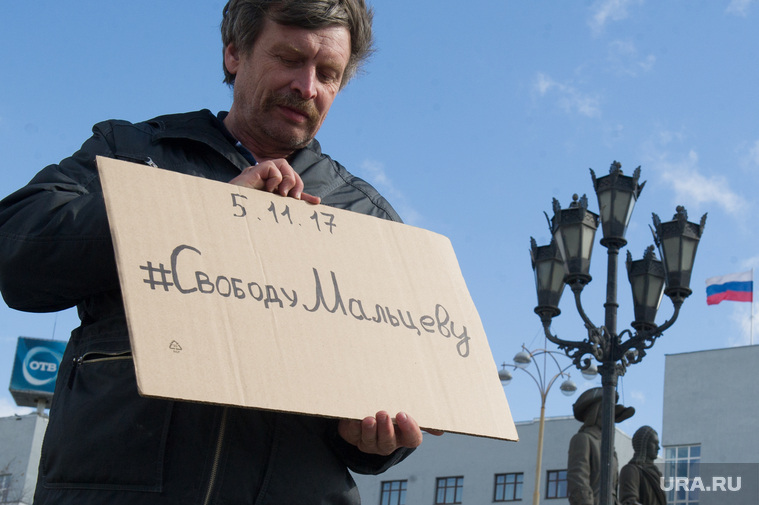 5.11.17
#Свободу Мальцеву
ОТВ
URA.RU